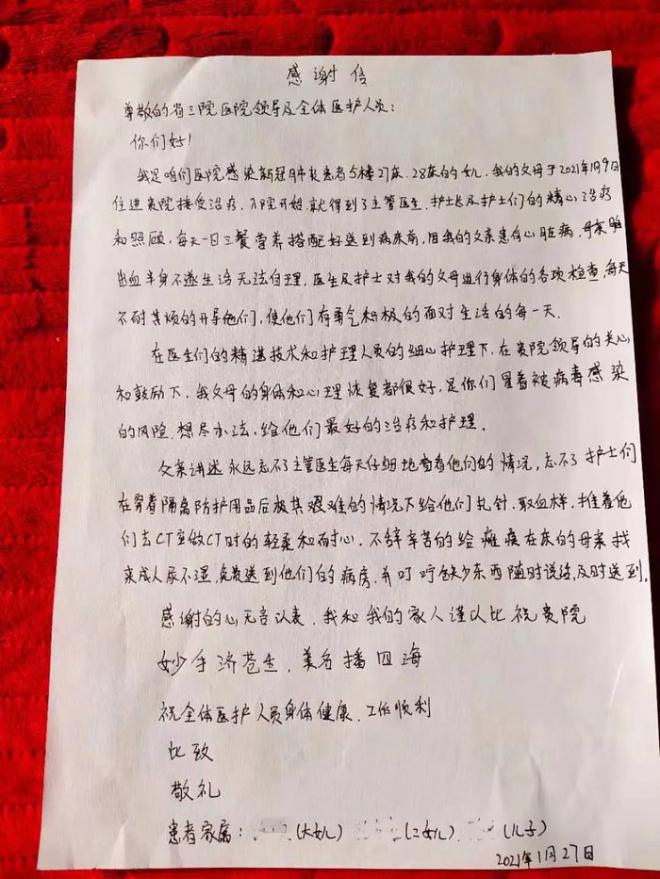 感谢信
尊敬的省三院医院领导及全体医护人员：
你们好！
我是咱们医院感染新冠肺炎患者5楼27床、28床的女儿，我的父母于2021年1月9日
住进贵院接受治疗，入院开始就得到了主管医生、护士长及护士们的精心治疗
和照顾，每天一日三餐营养搭配好送到病床前，因我的父亲患有心脏病，母亲脑
出血半身不遂生活无法自理，医生及护士对我的父母进行身体的各项检查，每天
不耐其烦的开导他们，使他们有勇气积极的面对生活的每一天。
在医生们的精湛技术和护理人员的细心护理下，在贵院领导的关心
和鼓励下，我父母的身体和心理恢复都很好，是你们冒着被病毒感染
的风险，想尽办法，给他们最好的治疗和护理。
父亲讲述永远忘不了主管医生每天仔细地查看他们的情况，忘不了护士们
在穿着隔离防护用品后极其艰难的情况下给他们扎针，取血样，推着他
们去CT室做CT时的轻柔和耐心，不辞辛苦的给瘫痪在床的母亲找
来成人尿不湿，免费送到他们的病房，并叮咛缺少东西随时说话，及时送到。
感谢的心无言以表，我和我的家人谨以此祝贵院
妙手济苍生，美名播四海
祝全体医护人员身体健康、工作顺利
此致
敬礼
患者家属：（大女儿）（二女儿）、（儿子）
2021年1月27日